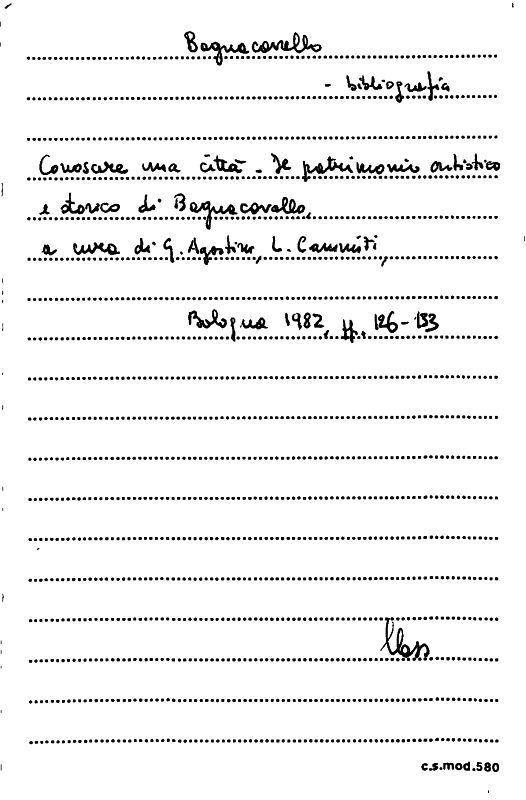 Bagnacavallo
- bibliografia
Conoscere una città - Il patrimonio artistico
e storico di Bagnacavallo,
a cura di G. Agostini, L. Ciammitti,
Bologna 1982, pp. 126-133
Class
c.s.mod.580